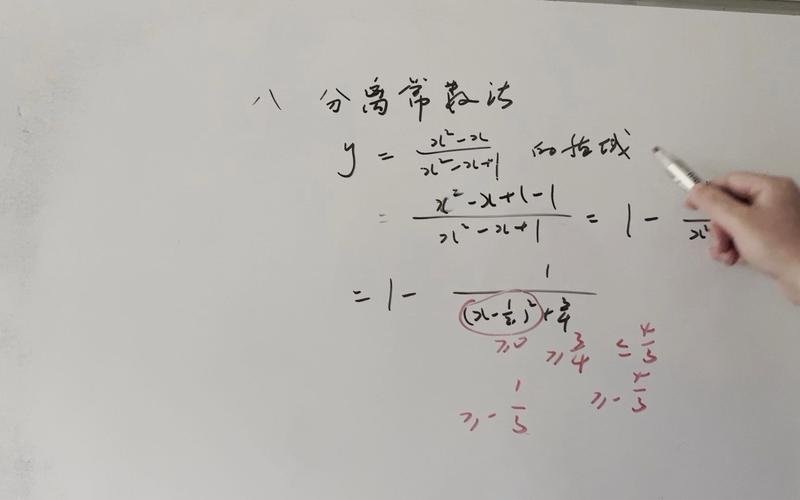 八 分离常数法
y = \frac{x^2-x}{x^2-x+1} 的值域
= \frac{x^2-x+1-1}{x^2-x+1} = 1 - \frac{}{x^2}
= 1 - \frac{1}{(x-\frac{1}{2})^2+\frac{3}{4}}
≥0 ≥\frac{3}{4} ≤\frac{4}{3}
≥-\frac{1}{3} ≥-\frac{4}{3}